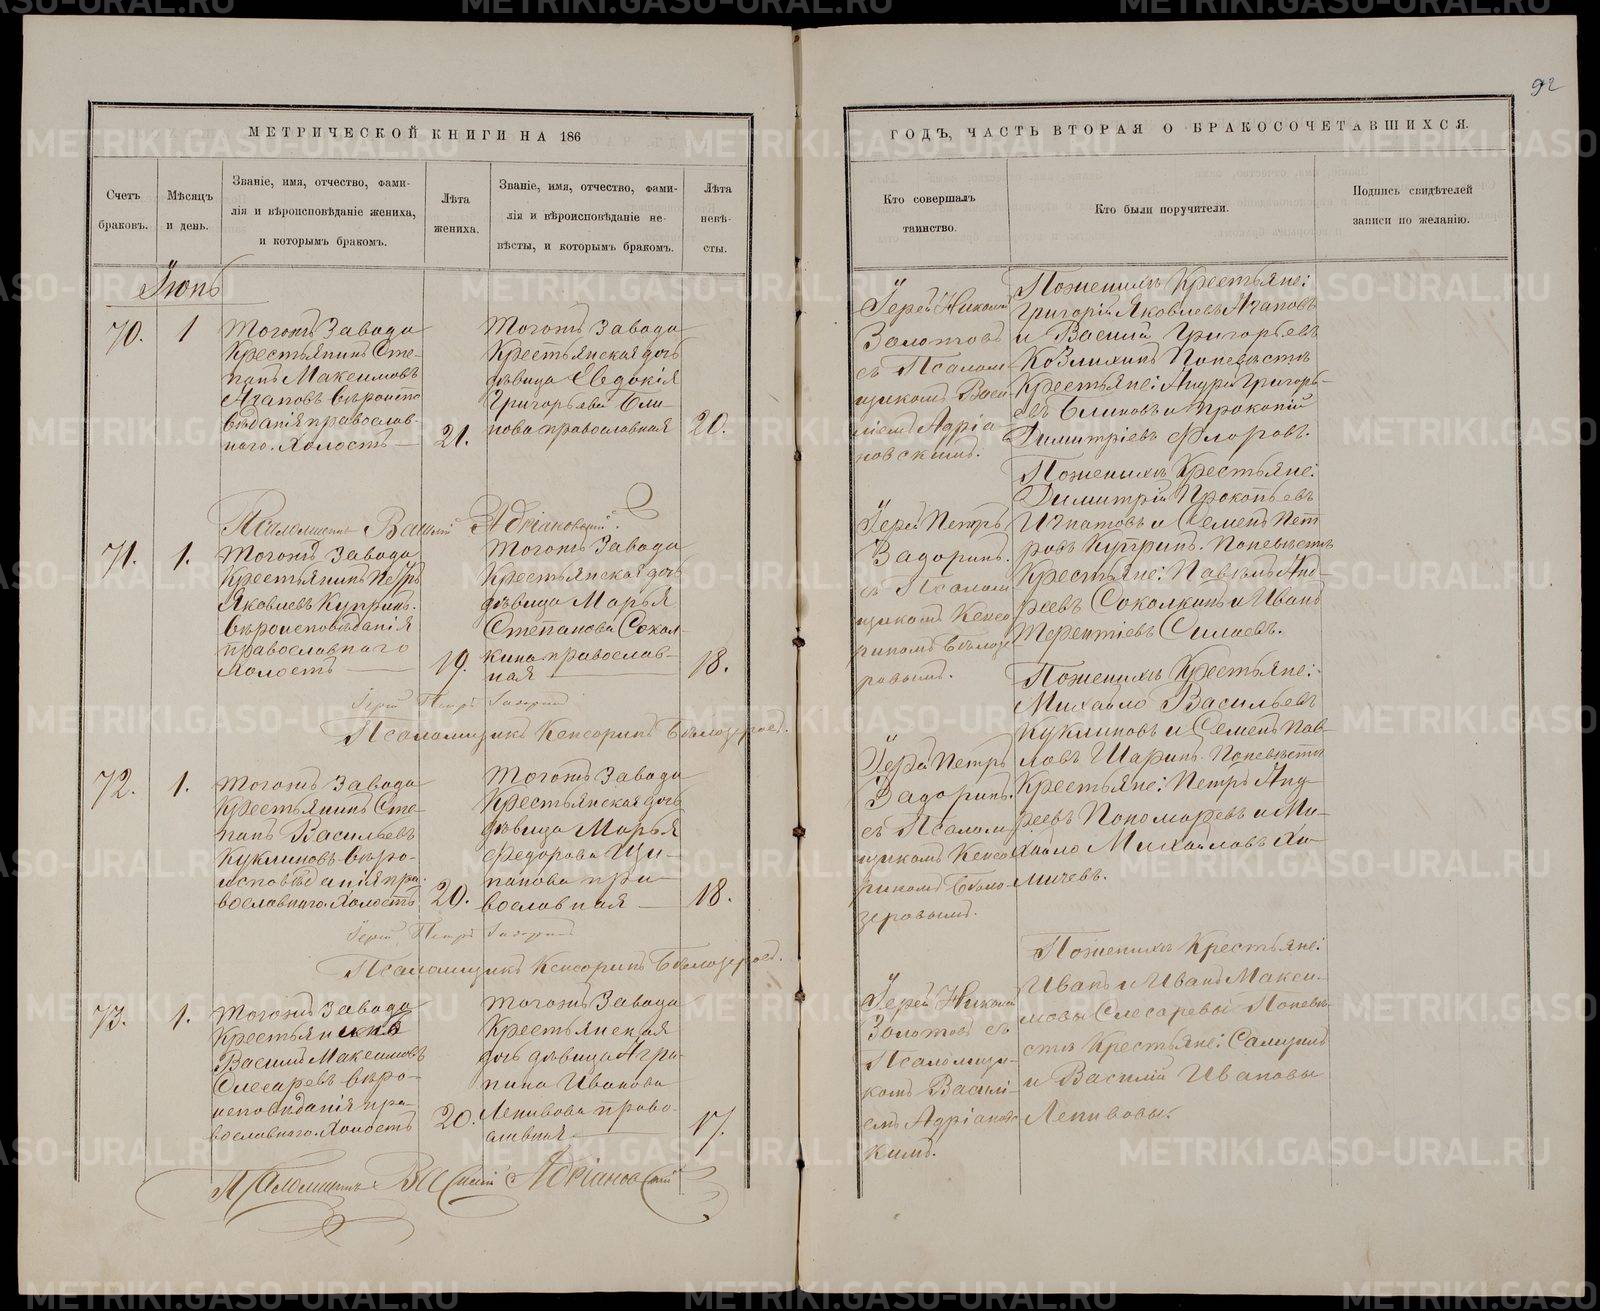 92
МЕТРИЧЕСКОЙ КНИГИ НА 186
ГОДЪ, ЧАСТЬ ВТОРАЯ О БРАКОСОЧЕТАВШИХСЯ.
Счетъ
браковъ.
Мѣсяцъ
и день.
Званіе, имя, отчество, фами-
лія и вѣроисповѣданіе жениха,
и которымъ бракомъ.
Лѣта
жениха.
Званіе, имя, отчество, фами-
лія и вѣроисповѣданіе не-
вѣсты, и которымъ бракомъ.
Лѣта
невѣ-
сты.
Кто совершалъ
таинство.
Кто были поручители.
Подпись свидѣтелей
записи по желанію.
Іюнь
70.
1
Тогожъ Завода
Крестьянинъ Сте-
панъ Максимовъ
Агаповъ вѣроиспо
вѣданія православ-
наго. Холостъ
21.
Тогожъ Завода
Крестьянская дочь
дѣвица Евдокія
Григорьева Бли-
нова православная
20.
Іерей Николай
Золотовъ
съ Псалом-
щикомъ Васи-
ліемъ Адріа-
новскимъ.
Пожениxѣ Крестьяне:
Григорій Яковлевъ Агаповъ
и Василій Григорьевъ
Козлихинъ Поневѣстѣ
Крестьяне: Андрей Григорь-
евъ Блиновъ и Прокопій
Димитріевъ Флоровъ.
Псаломщикъ Василій Адріановскій.
71.
1.
Тогожъ Завода
Крестьянинъ Петръ
Яковлевъ Купринъ.
вѣроисповѣданія
православнаго
Холостъ
19.
Тогожъ Завода
Крестьянская дочь
дѣвица Марья
Степанова Сокол-
кина православ-
ная
18.
Іерей Петръ
Задоринъ.
съ Псалом
щикомъ Кенсо
риномъ Бѣлозе-
ровымъ.
Поженихѣ Крестьяне:
Димитрій Прокопьевъ
Игнатовъ и Семенъ Пет
ровъ Купринъ. Поневѣстѣ
Крестьяне: Павелъ Анд-
реевъ Соколкинъ и Иванъ
Терентіевъ Силаевъ.
Іерей Петръ Задоринъ
Псаломщикъ Кенсоринъ Бѣлозеровъ.
72.
1.
Тогожъ Завода
Крестьянинъ Сте-
панъ Васильевъ
Куклиновъ вѣро-
исповѣданія пра-
вославнаго. Холостъ
20.
Тогожъ Завода
Крестьянская дочь
дѣвица Марья
Федорова Щи-
панова пра-
вославная
18.
Іерей Петръ
Задоринъ.
съ Псалом
щикомъ Кенсо
риномъ Бѣло-
зеровымъ.
Поженихѣ Крестьяне:
Михайло Васильевъ
Куклиновъ и Семенъ Пав-
ловъ Шаринъ. Поневѣстѣ
Крестьяне: Петръ Анд-
реевъ Пономаревъ и Ми-
хайло Михайловъ Хо-
мичевъ.
Іерей Петръ Задоринъ
Псаломщикъ Кенсоринъ Бѣлозеровъ.
73.
1.
Тогожъ Завода
Крестьянинъ
Василій Максимовъ
Слесаревъ вѣро-
исповѣданія пра-
вославнаго. Холостъ
20.
Тогожъ Завода
Крестьянская
дочь дѣвица Агри-
пина Иванова
Ленивова право-
славная
17.
Іерей Николай
Золотовъ съ
Псаломщи-
комъ Василі-
емъ Адріановс
кимъ.
Поженихѣ Крестьяне:
Иванъ и Иванъ Макси-
мовы Слесаревы Поневѣ-
стѣ Крестьяне: Самуилъ
и Василій Ивановы
Ленивовы.
Псаломщикъ Василій Адріановскій
METRIKI.GASO-URAL.RU